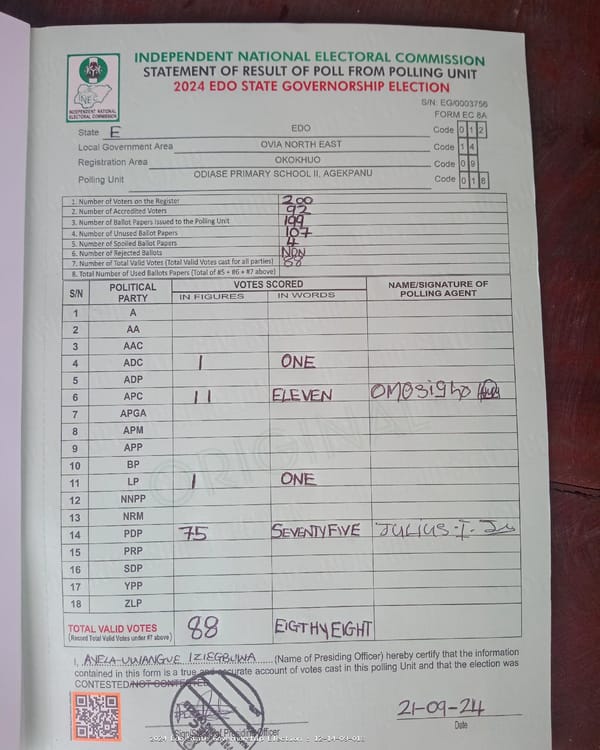 INDEPENDENT NATIONAL ELECTORAL COMMISSION
STATEMENT OF RESULT OF POLL FROM POLLING UNIT
2024 EDO STATE GOVERNORSHIP ELECTION
INEC
INDEPENDENT NATIONAL ELECTORAL COMMISSION
S/N: EG/0003756
FORM EC 8A
State E EDO Code 0 1 2
Local Government Area OVIA NORTH EAST Code 1 4
Registration Area OKOKHUO Code 0 9
Polling Unit ODIASE PRIMARY SCHOOL II, AGEKPANU Code 0 1 8
1. Number of Voters on the Register 200
2. Number of Accredited Voters 92
3. Number of Ballot Papers Issued to the Polling Unit 199
4. Number of Unused Ballot Papers 107
5. Number of Spoiled Ballot Papers 4
6. Number of Rejected Ballots
7. Number of Total Valid Votes (Total Valid Votes cast for all parties) 88
8. Total Number of Used Ballots Papers (Total of #5 + #6 + #7 above)
S/N POLITICAL PARTY VOTES SCORED NAME/SIGNATURE OF POLLING AGENT
IN FIGURES IN WORDS
1 A
2 AA
3 AAC
4 ADC 1 ONE
5 ADP
6 APC 11 ELEVEN OMOSigho
7 APGA
8 APM
9 APP
10 BP
11 LP 1 ONE
12 NNPP
13 NRM
14 PDP 75 SEVENTYFIVE JULIUS-I-
15 PRP
16 SDP
17 YPP
18 ZLP
ORIGINAL
TOTAL VALID VOTES 88 EIGTHYEIGHT
(Record Total Valid Votes under #7 above)
I, AYELA-UWANGUE IZIEGBUWA (Name of Presiding Officer) hereby certify that the information
contained in this form is a true and accurate account of votes cast in this polling Unit and that the election was
CONTESTED/NOT CONTESTED
21-09-24
Date
Signature of Presiding Officer
2024 Edo State Governorship Election - 12-14-09-018